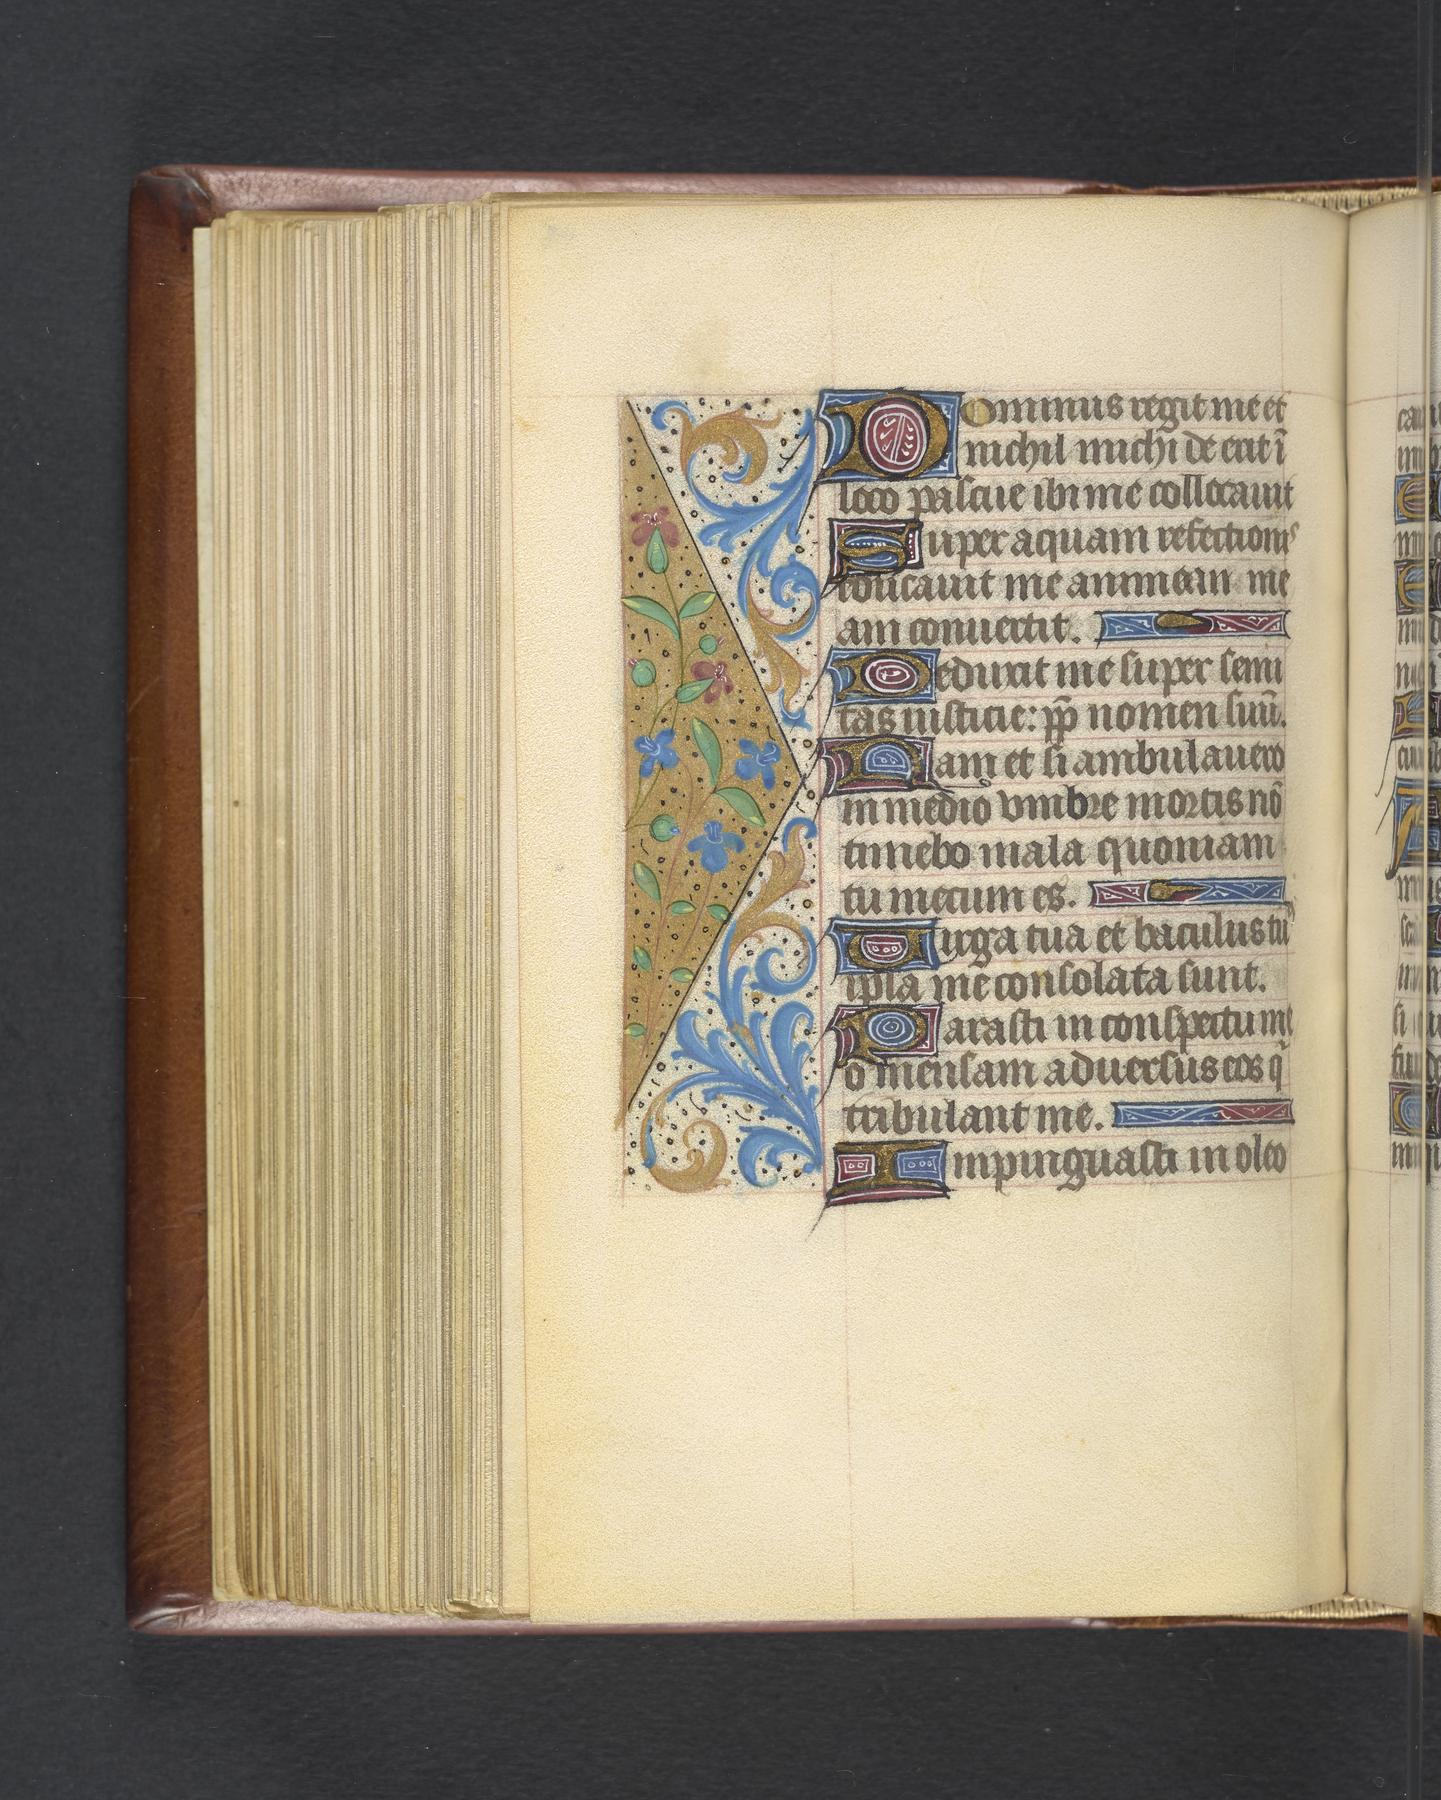 Dominus regit me et
nichil michi de erit ī
loco pascue ibi me collocauit
Super aquam refectionis
educauit me animam me
am conuertit.
Deduxit me super semi
tas iusticie: ꝓp̄ nomen suū.
Nam et si ambulauero
in medio vmbre mortis nō
timebo mala quoniam
tu mecum es.
Uirga tua et baculus tu⁹
ipsa me consolata sunt.
Parasti in conspectu me
o mensam aduersus eos q̄
tribulant me.
Impinguasti in oleo